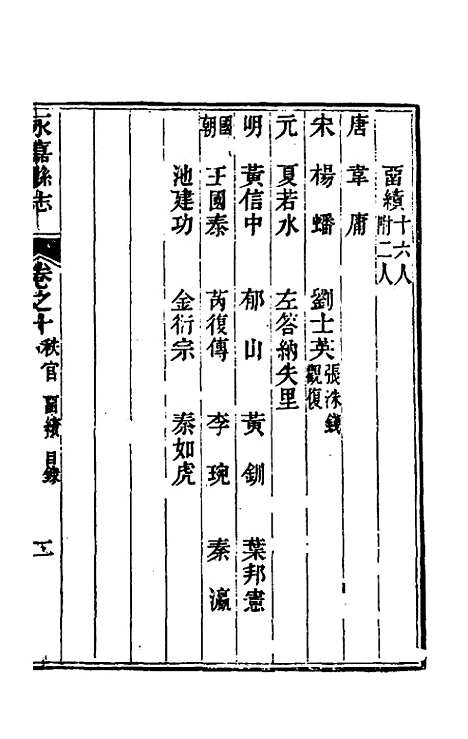 畱績十六人附二人
唐　韋庸
宋　楊蟠　劉士英張洙錢觀復
元　夏若水　左答納失里
明　黃信中　郁山　黃釧　葉邦憲
國朝　王國泰　芮復傳　李琬　秦瀛
池建功　金衍宗　秦如虎
永嘉縣志　卷之十　秩官　畱績　目錄　一